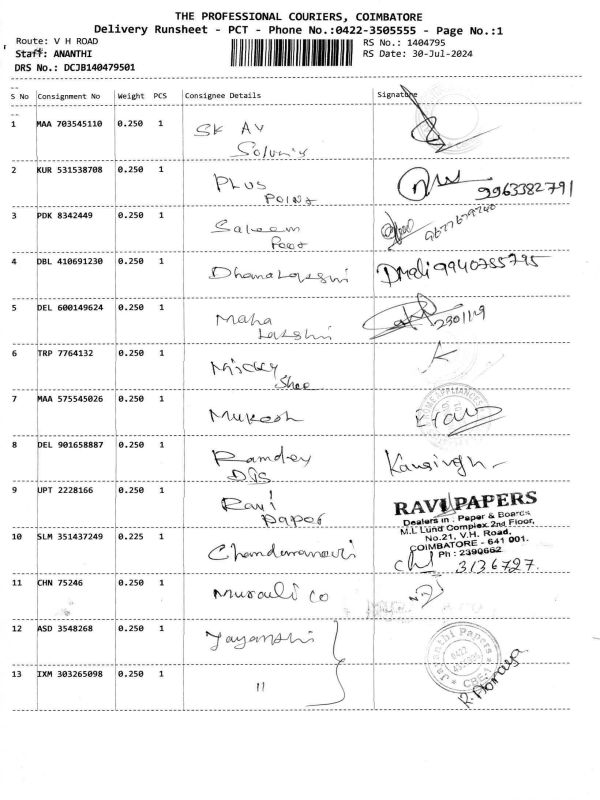 THE PROFESSIONAL COURIERS, COIMBATORE
Delivery Runsheet - PCT - Phone No.:0422-3505555 - Page No.:1
Route: V H ROAD
RS No.: 1404795
Staff: ANANTHI
RS Date: 30-Jul-2024
DRS No.: DCJB140479501
S No Consignment No Weight PCS Consignee Details Signature
1 MAA 703545110 0.250 1 SK AV
2 KUR 531538708 0.250 1 PLUS
POINT
9963382791
3 PDK 8342449 0.250 1 Saleem
4 DBL 410691230 0.250 1 Dhanalakshmi Dmali 9940755795
5 DEL 600149624 0.250 1 Maha
Lakshmi
2301119
6 TRP 7764132 0.250 1 Mickey
Shoe
7 MAA 575545026 0.250 1 Mukesh
HOME APPLIANCES
8 DEL 901658887 0.250 1 Ramdev Kansingh
9 UPT 2228166 0.250 1 Ravi
Paper
RAVI PAPERS
Dealers in : Paper & Boards
M.L Lund Complex 2nd Floor,
No.21, V.H. Road,
COIMBATORE - 641 001.
Ph : 2390662
10 SLM 351437249 0.225 1
3136727.
11 CHN 75246 0.250 1 Murali co
12 ASD 3548268 0.250 1 Jayanthi
Jayanthi Papers
0422
CBE-1
13 IXM 303265098 0.250 1 "